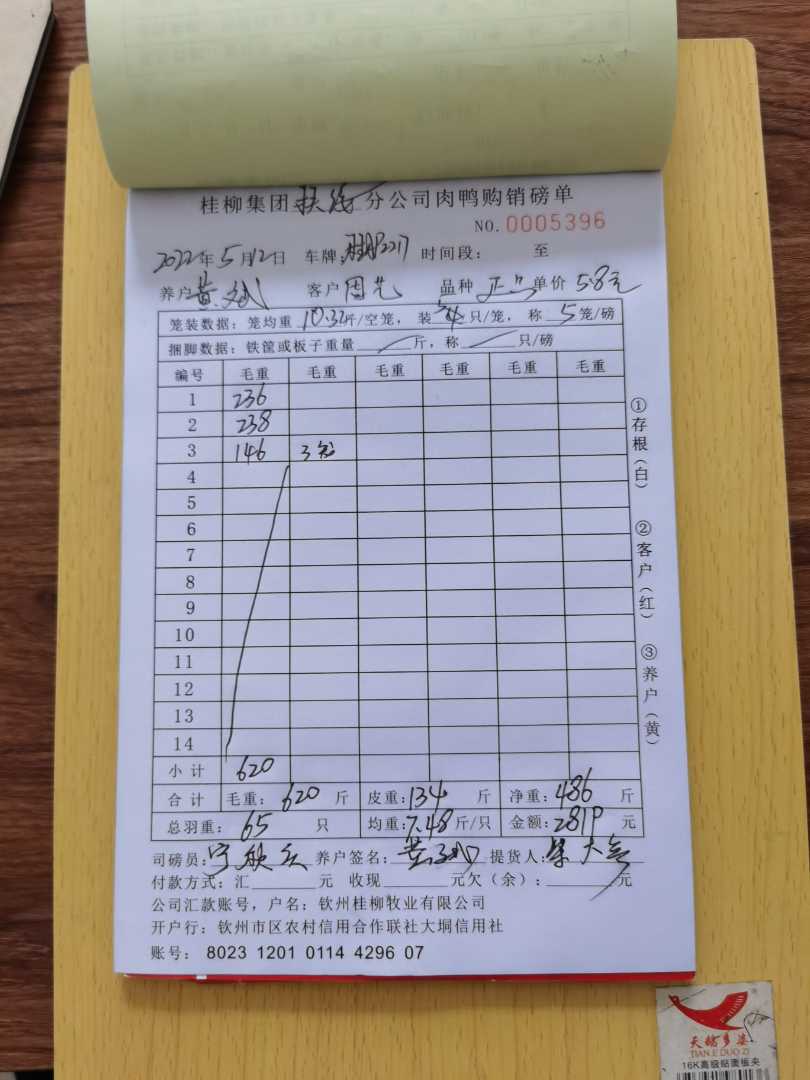 桂柳集团 分公司肉鸭购销磅单
NO.0005396
2022年5月12日 车牌: 时间段: 至
养户 黄 客户 周 品种 正 单价 5.8元
笼装数据: 笼均重 10.32斤/空笼, 装 只/笼, 称 5 笼/磅
捆脚数据: 铁筐或板子重量 斤, 称 只/磅
编号 毛重 毛重 毛重 毛重 毛重 毛重
1 236
2 238
3 146 3笼
4
5
6
7
8
9
10
11
12
13
14
小计 620
合计 毛重: 620 斤 皮重: 134 斤 净重: 486 斤
总羽重: 65 只 均重: 7.48斤/只 金额: 2819 元
司磅员: 养户签名: 黄 提货人: 大
付款方式: 汇 元 收现 元欠(余): 元
公司汇款账号, 户名: 钦州桂柳牧业有限公司
开户行: 钦州市区农村信用合作联社大垌信用社
账号: 8023 1201 0114 4296 07
①存根(白)
②客户(红)
③养户(黄)
天
TIAN E DUO ZI
16K高级贴面板夹